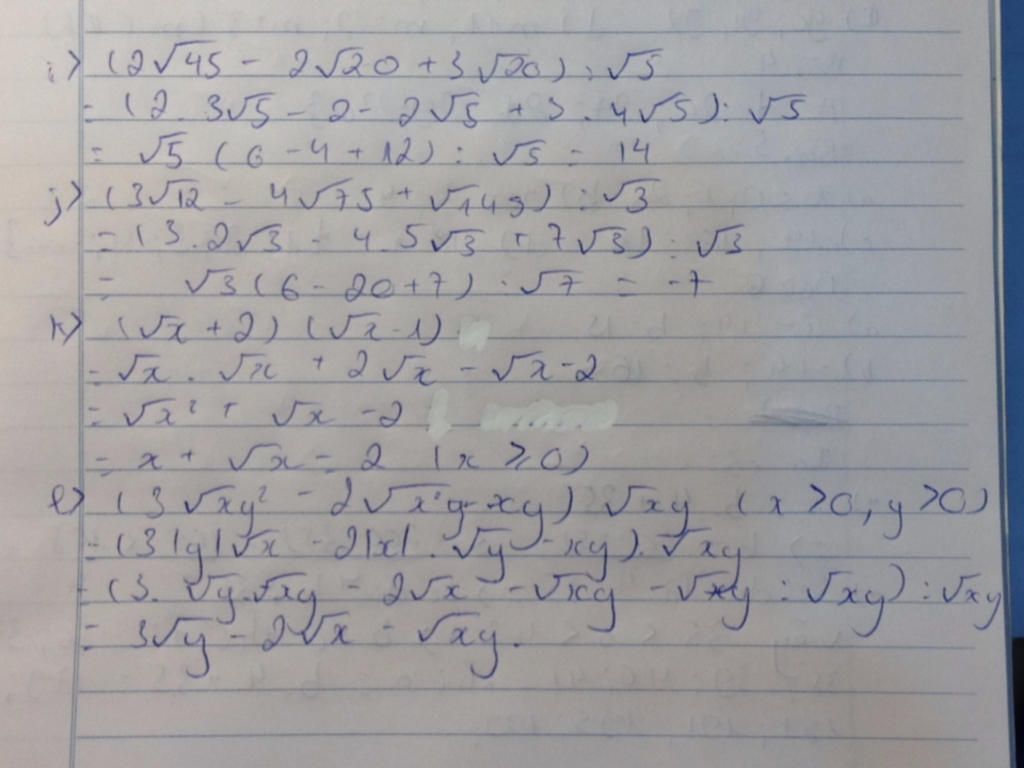 i) (2√45 - 2√20 + 3√20) : √5
= (2. 3√5 - 2 - 2√5 + 3 . 4√5) : √5
= √5 (6 - 4 + 12) : √5 = 14
j) (3√12 - 4√75 + √149) : √3
= (3.2√3 - 4.5√3 + 7√3) : √3
= √3 (6 - 20 + 7) . √7 = -7
k) (√x + 2) (√x - 1)
= √x . √x + 2√x - √x - 2
= √x² + √x - 2
= x + √x - 2 (x ≥ 0)
l) (3√xy² - 2√x²y - xy) √xy (x > 0, y > 0)
= (3|y|√x - 2|x| . √y - xy) . √xy
= (3. √y.√xy - 2√x - √xy - √xy : √xy) : √xy
= 3√y - 2√x - √xy.